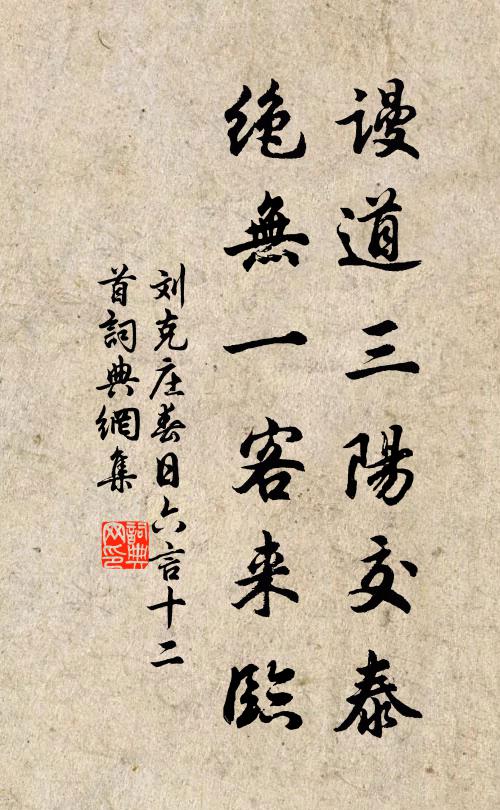 謾道三陽交泰
絶無一客来臨
刘克庄春日六言十二
首詞典網集
詞典
网印